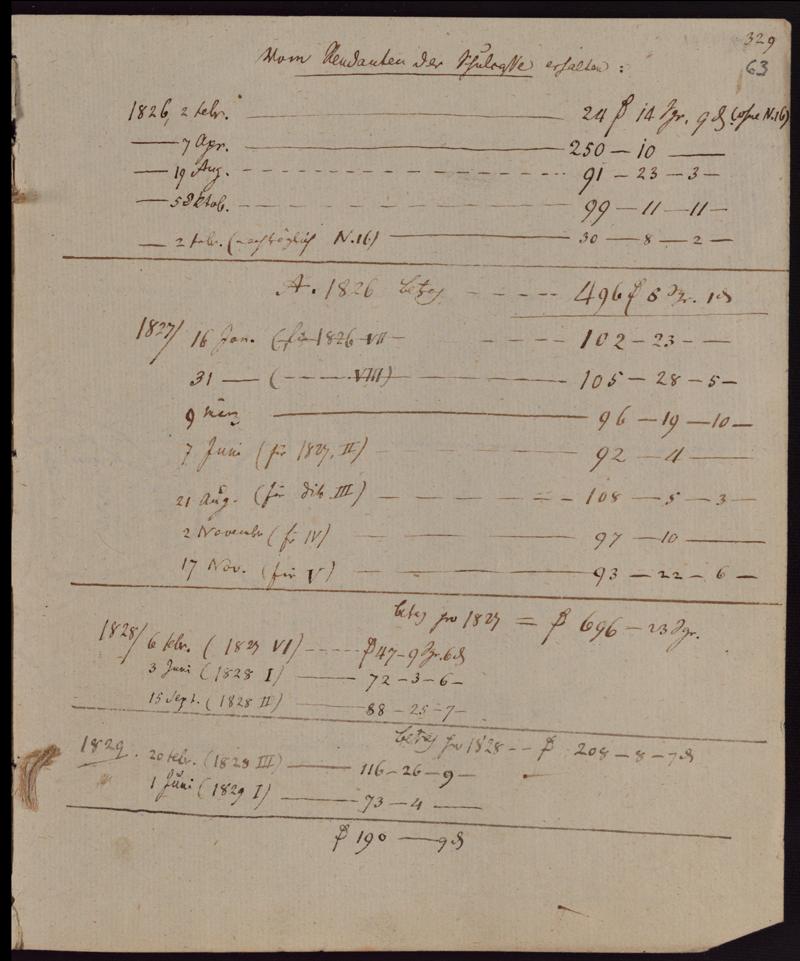 329
63
Vom Rendanten der Schulcasse erhalten:
1826, 2 Febr. — 24 ₰ 14 Sgr. 9 ₰ (ohne N.16)
— 7 Apr. — 250 — 10 —
— 19 Aug. - - - - 91 — 23 — 3 —
— 5 Oktob. — — — 99 — 11 — 11 —
— 2 Febr. (nachträglich N.16) — 30 — 8 — 2 —
A. 1826 betrag - - - - 496 5 Sgr. 1 ₰
1827/ 16 Jan. (für 1826 VII — - - - - 102 — 23 — —
31 — ( - - - - VIII) — 105 — 28 — 5 —
9 März — 96 — 19 — 10 —
7 Juni (für 1827, II) — — — 92 — 4 —
21 Aug. (für dito III) — — — 108 — 5 — 3 —
2 November (für IV) — — — 97 — 10 —
17 Nov. (für V) — — — 93 — 22 — 6 —
betrag pro 1827 = 696 — 23 Sgr.
1828/ 6 Febr. (1827 VI) - - - - 47 - 9 Sgr. 6 ₰
3 Juni (1828 I) — 72 — 3 — 6 —
15 Sept. (1828 II) — 88 — 25 — 7 —
betrag pro 1828 - - 208 — 8 — 7 ₰
1829. 20 Febr. (1828 III) — 116 — 26 — 9 —
1 Juni (1829 I) — 73 — 4 —
190 — 9 ₰